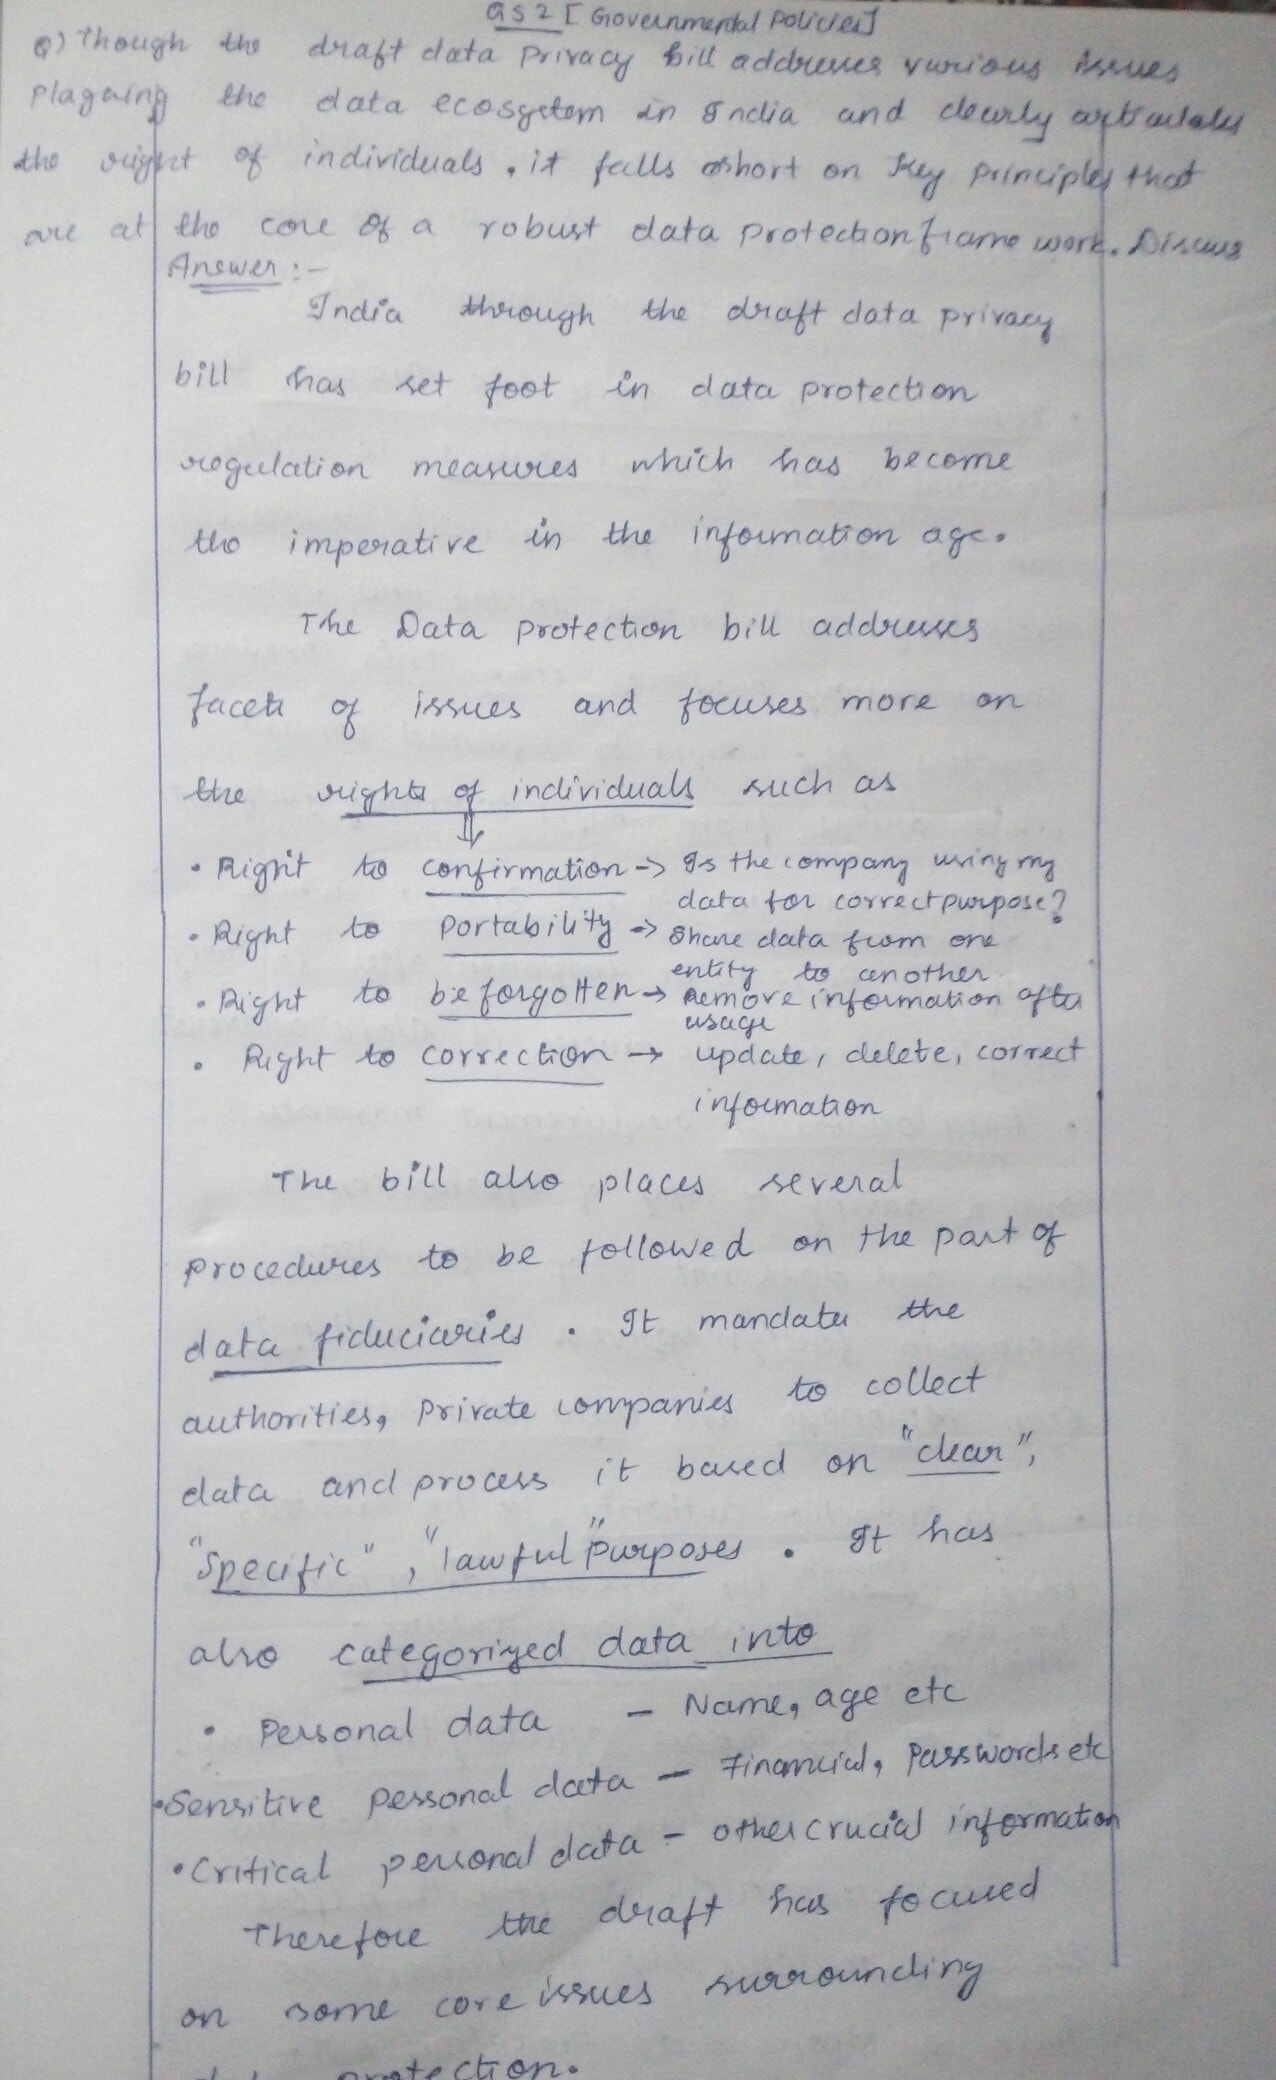 GS 2 [Governmental Policies]
Q) Though the draft data Privacy bill addresses various issues
Plaguing the data ecosystem in India and clearly articulates
the right of individuals, it falls short on key principles that
are at the core of a robust data protection frame work. Discuss
Answer :-
India through the draft data privacy
bill has set foot in data protection
regulation measures which has become
the imperative in the information age.
The Data protection bill addresses
facets of issues and focuses more on
the rights of individuals such as
• Right to confirmation -> Is the company using my
data for correct purpose?
• Right to Portability -> Share data from one
entity to another
• Right to be forgotten -> Remove information after
usage
• Right to correction -> update, delete, correct
information
The bill also places several
procedures to be followed on the part of
data fiduciaries. It mandates the
authorities, private companies to collect
data and process it based on "clear",
"Specific", "lawful" purposes. It has
also categorized data into
• Personal data - Name, age etc
• Sensitive personal data - Financial, Passwords etc
• Critical personal data - other crucial information
Therefore the draft has focused
on some core issues surrounding
protection.